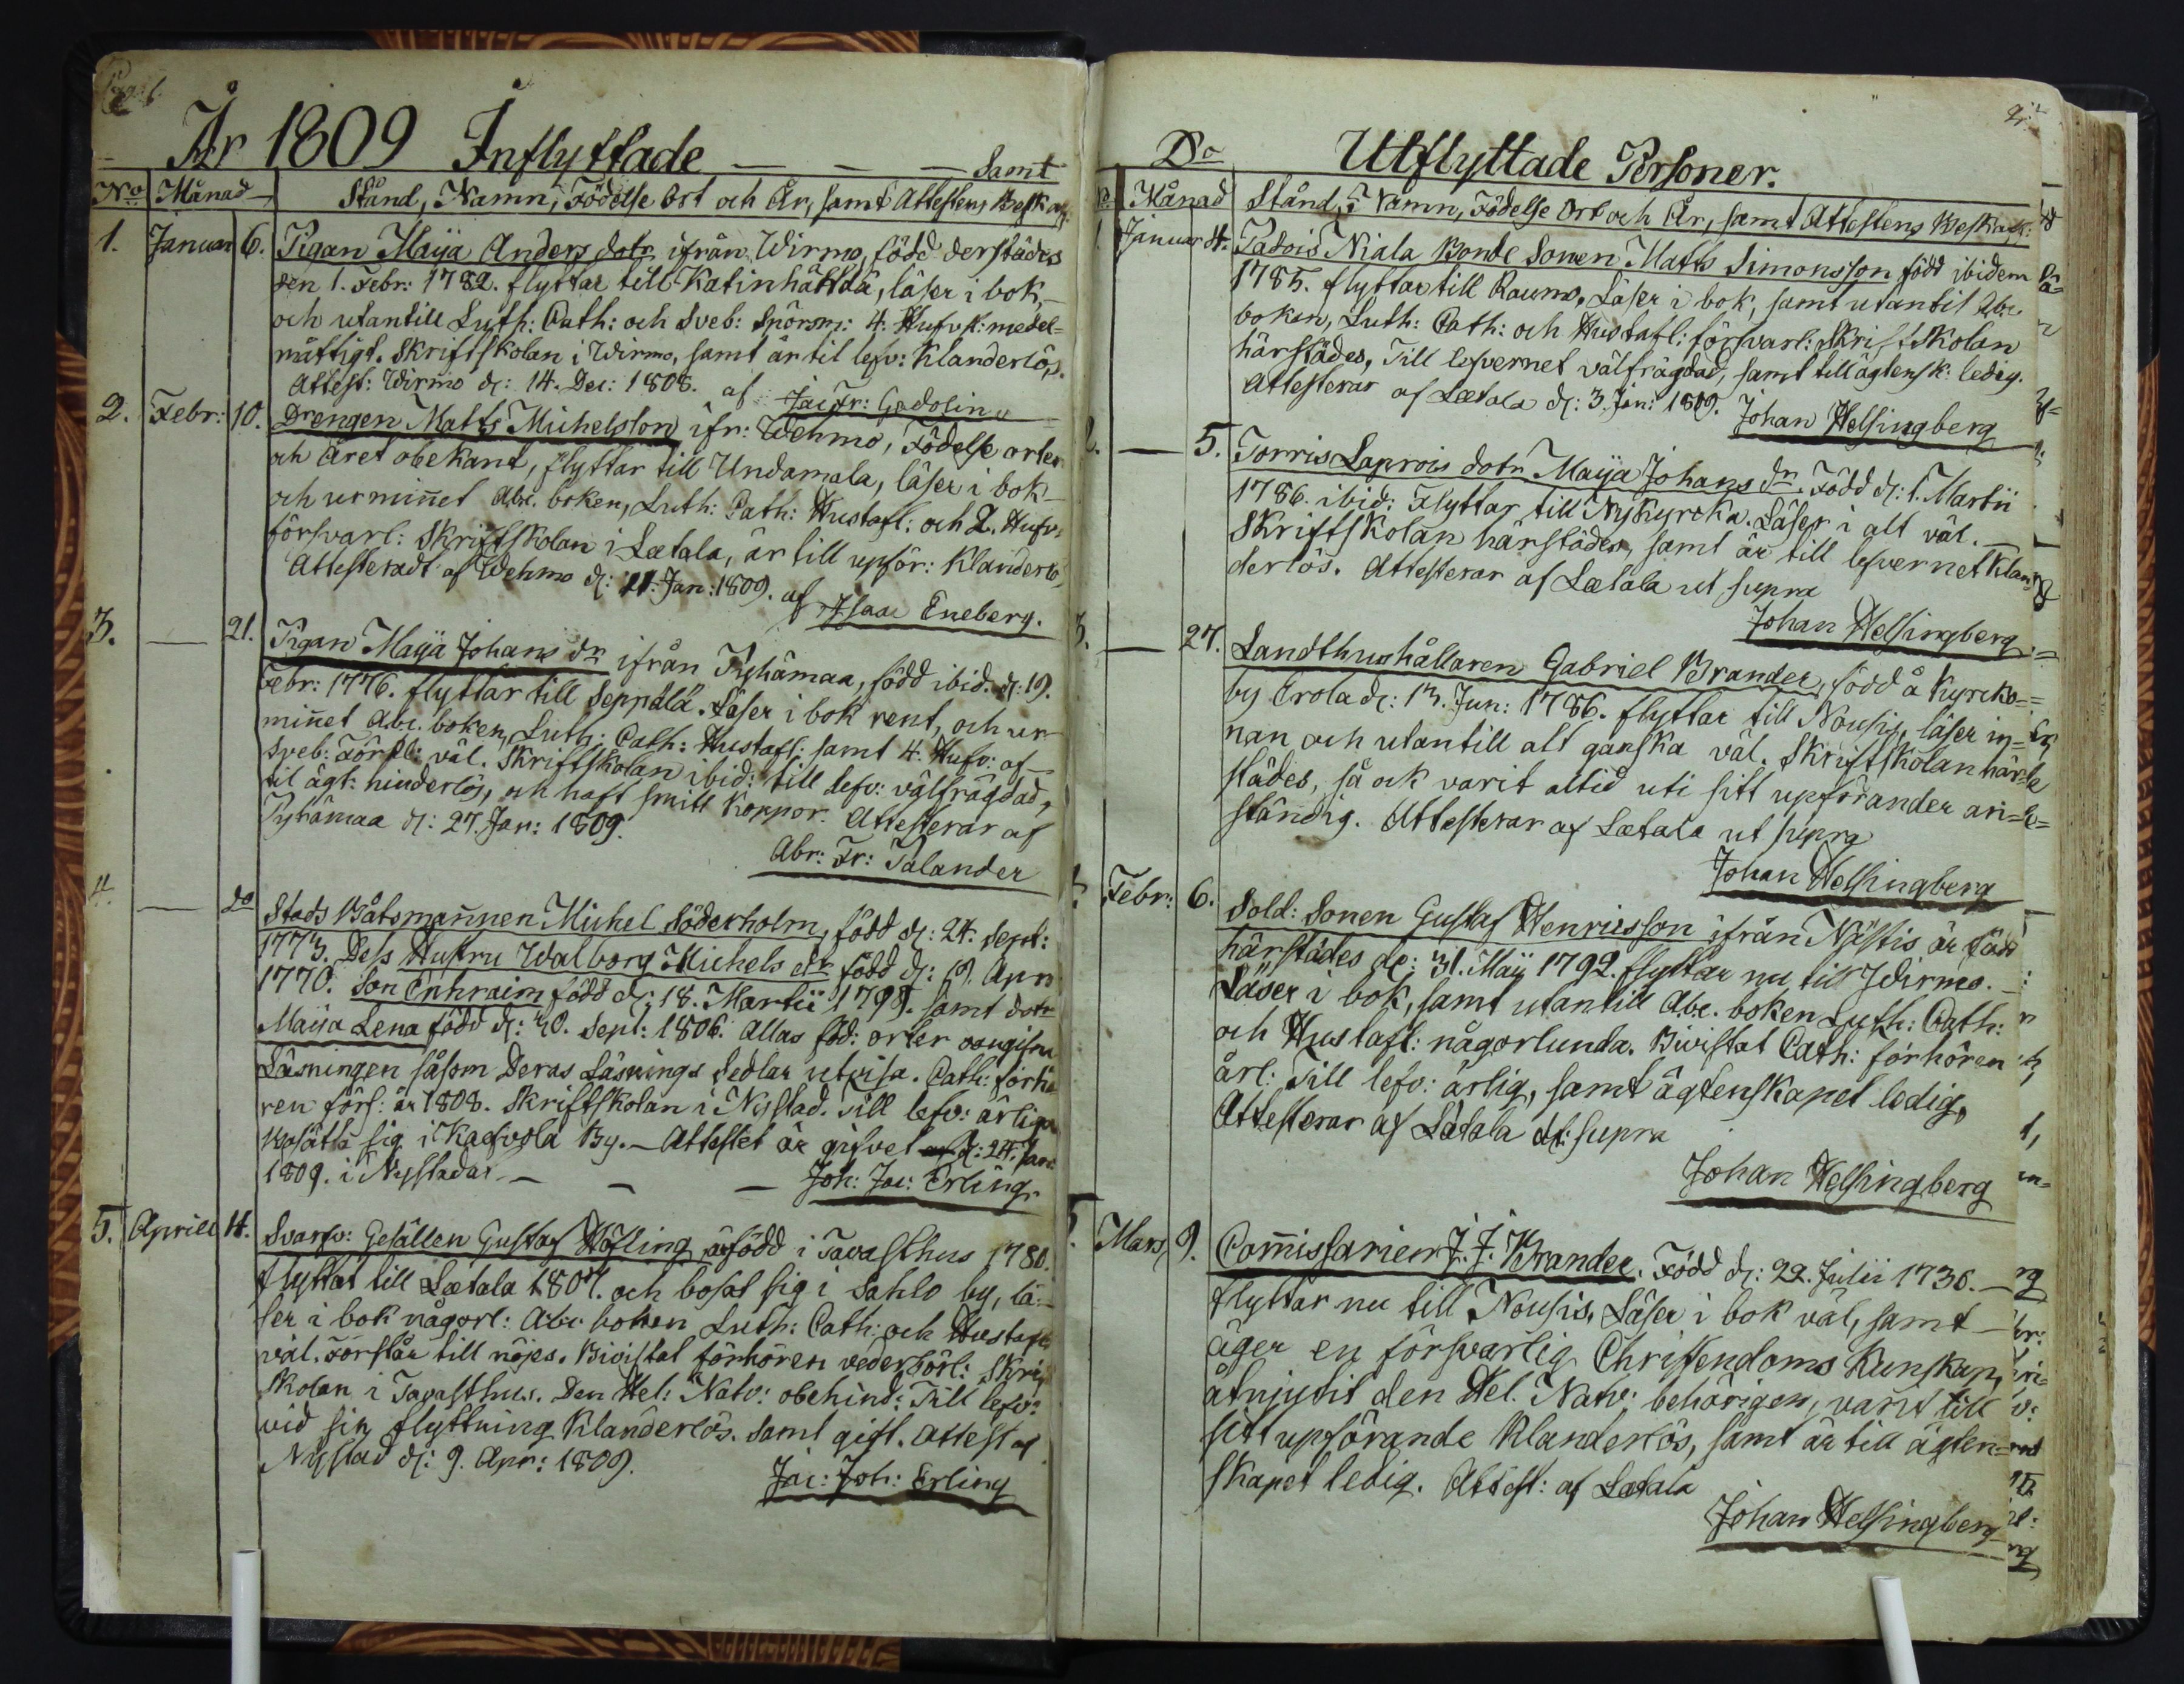 År 1809 Inflyttade — — — Samt
No Månad Stånd, Namn, Födelse Ort och År, samt Attestens Beskaff:
1. Januar 6. Pigan Maija Anders dotr ifrån Wirmo, född derstädes
den 1. Febr: 1782. flyttar till Katinhäntää, läser i bok,
och utantill Luth: Cath: och Sveb: Spörsm: 4. Hufvk: medel-
måttigt. Skriftskolan i Wirmo, samt är til lefv: Klanderlös.
Attest: Wirmo d: 14. Dec: 1808. af Jac Fr: Gadolin
2. Febr: 10. Drengen Matts Michelsson ifr: Wehmo, Födelse orten
och Året obekant, flyttar till Undamala, läser i bok
och urminnet Abc. boken, Luth: Cath: Hustafl: och 2. Hufv:
försvarl: Skriftskolan i Letala, är till upför: Klanderlö
Attesteradt af Wehmo d: 21. Jan: 1809. af Isaac Eneberg.
3. — 21. Pigan Maija Johans dr ifrån Pyhämaa, född ibid. d: 19.
Febr: 1776. flyttar till Seppälä. Läser i bok rent, och ur
minnet Abc. boken, Luth: Cath: Hustafl: samt 4. Hufv: af
Sveb: Förkl: väl. Skriftskolan ibid: till lefv: välfrägdad,
til ägt: hinderlös, och haft smitt Koppor. Attesterar af
Pyhämaa d: 27. Jan: 1809.
Abr: Fr: Talander
4. — do Stads Båtsmannen Michel Söderholm, född d: 24. Sept:
1773. Dess Hustru Walborg Michels dr född d: 19. Apr
1770. Son Ephraim född d: 18. Martii 1798. samt dotr
Maija Lena född d: 30. Sept: 1806. Allas föd: orter
Läsningen såsom Deras Läsnings Sedlar utvisa. Cath: förhö
ren förs: år 1808. Skriftskolan i Nystad. Till lefv: ärliga
upsätta sig i Kaafvola By. — Attestet är gifvet d: 24. Jan:
1809. i Nystad af — — — Joh: Jac: Erling.
5. Aprill 14. Svarfv: Gesällen Gustaf Höfling är född i Tavasthus 1780.
flyttat till Letala 1807. och bosat sig i Sahlo by, lä-
ser i bok någorl: Abc boken Luth: Cath: och Hustafl
väl. Förstår till nöjes. Bivistat förhören vederbörl: Skrif
skolan i Tavasthus. Den Hel: Natv: obehind: Till lefv:
vid sin flyttning Klanderlös. samt gift. Attest af
Nystad d: 9. Apr: 1809.
Jac: Joh: Erling
Do Utflyttade Personer.
Månad Stånd, Namn, Födelse Ort och År, samt Attestens Beskaff:
Januar 4. Padois Niala Bonde Sonen Matts Simonsson född ibidem
1785. flyttar till Raumo. Läser i bok, samt utantil Abc
boken, Luth: Cath: och Hustafl: försvarl: Skriftskolan
härstädes, Till lefvernet välfrägdad, samt till ägtensk: ledig.
Attesterar af Letala d: 3. Jan: 1809. Johan Helsingberg
2. — 5. Torris Laprois dotr Maija Johans dr. Född d: 1. Martii
1786. ibid: Flyttar till Nykyrcka. Läser i alt väl. —
Skriftskolan härstädes, samt är till lefvernet Klan
derlös. Attesterar af Letala ut supra
Johan Helsingberg
3. — 27. Landthushållaren Gabriel Brander, född å Kyrcko=
by Erola d: 13. Jun: 1786. flyttar till Nousis, läser in=
nan och utantill alt ganska väl. Skriftskolan här
städes, så ock varit altid uti sitt upförander an=
ständig. Attesterar af Letala ut supra
Johan Helsingberg
Febr: 6. Sold: Sonen Gustaf Henricsson ifrån Nästis är född
härstädes d: 31. Maij 1792. flyttar nu till Wirmo. —
Läser i bok, samt utantill Abc. boken Luth: Cath:
och Hustafl: någorlunda. Bivistat Cath: förhören
årl: Till lefv: ärlig, samt ägtenskapet ledig,
Attesterar af Letala ut supra
Johan Helsingberg
5. Mars 9. Commissarien J. J. Brander. Född d: 22. Julii 1736. —
flyttar nu till Nousis, Läser i bok väl, samt —
äger en försvarlig Christendoms Kunskap,
åtnjutit den Hel. Natv: behörigen, varit till
sitt upförande Klanderlös, samt är till ägten=
skapet ledig. Attest: af Letala
Johan Helsingberg